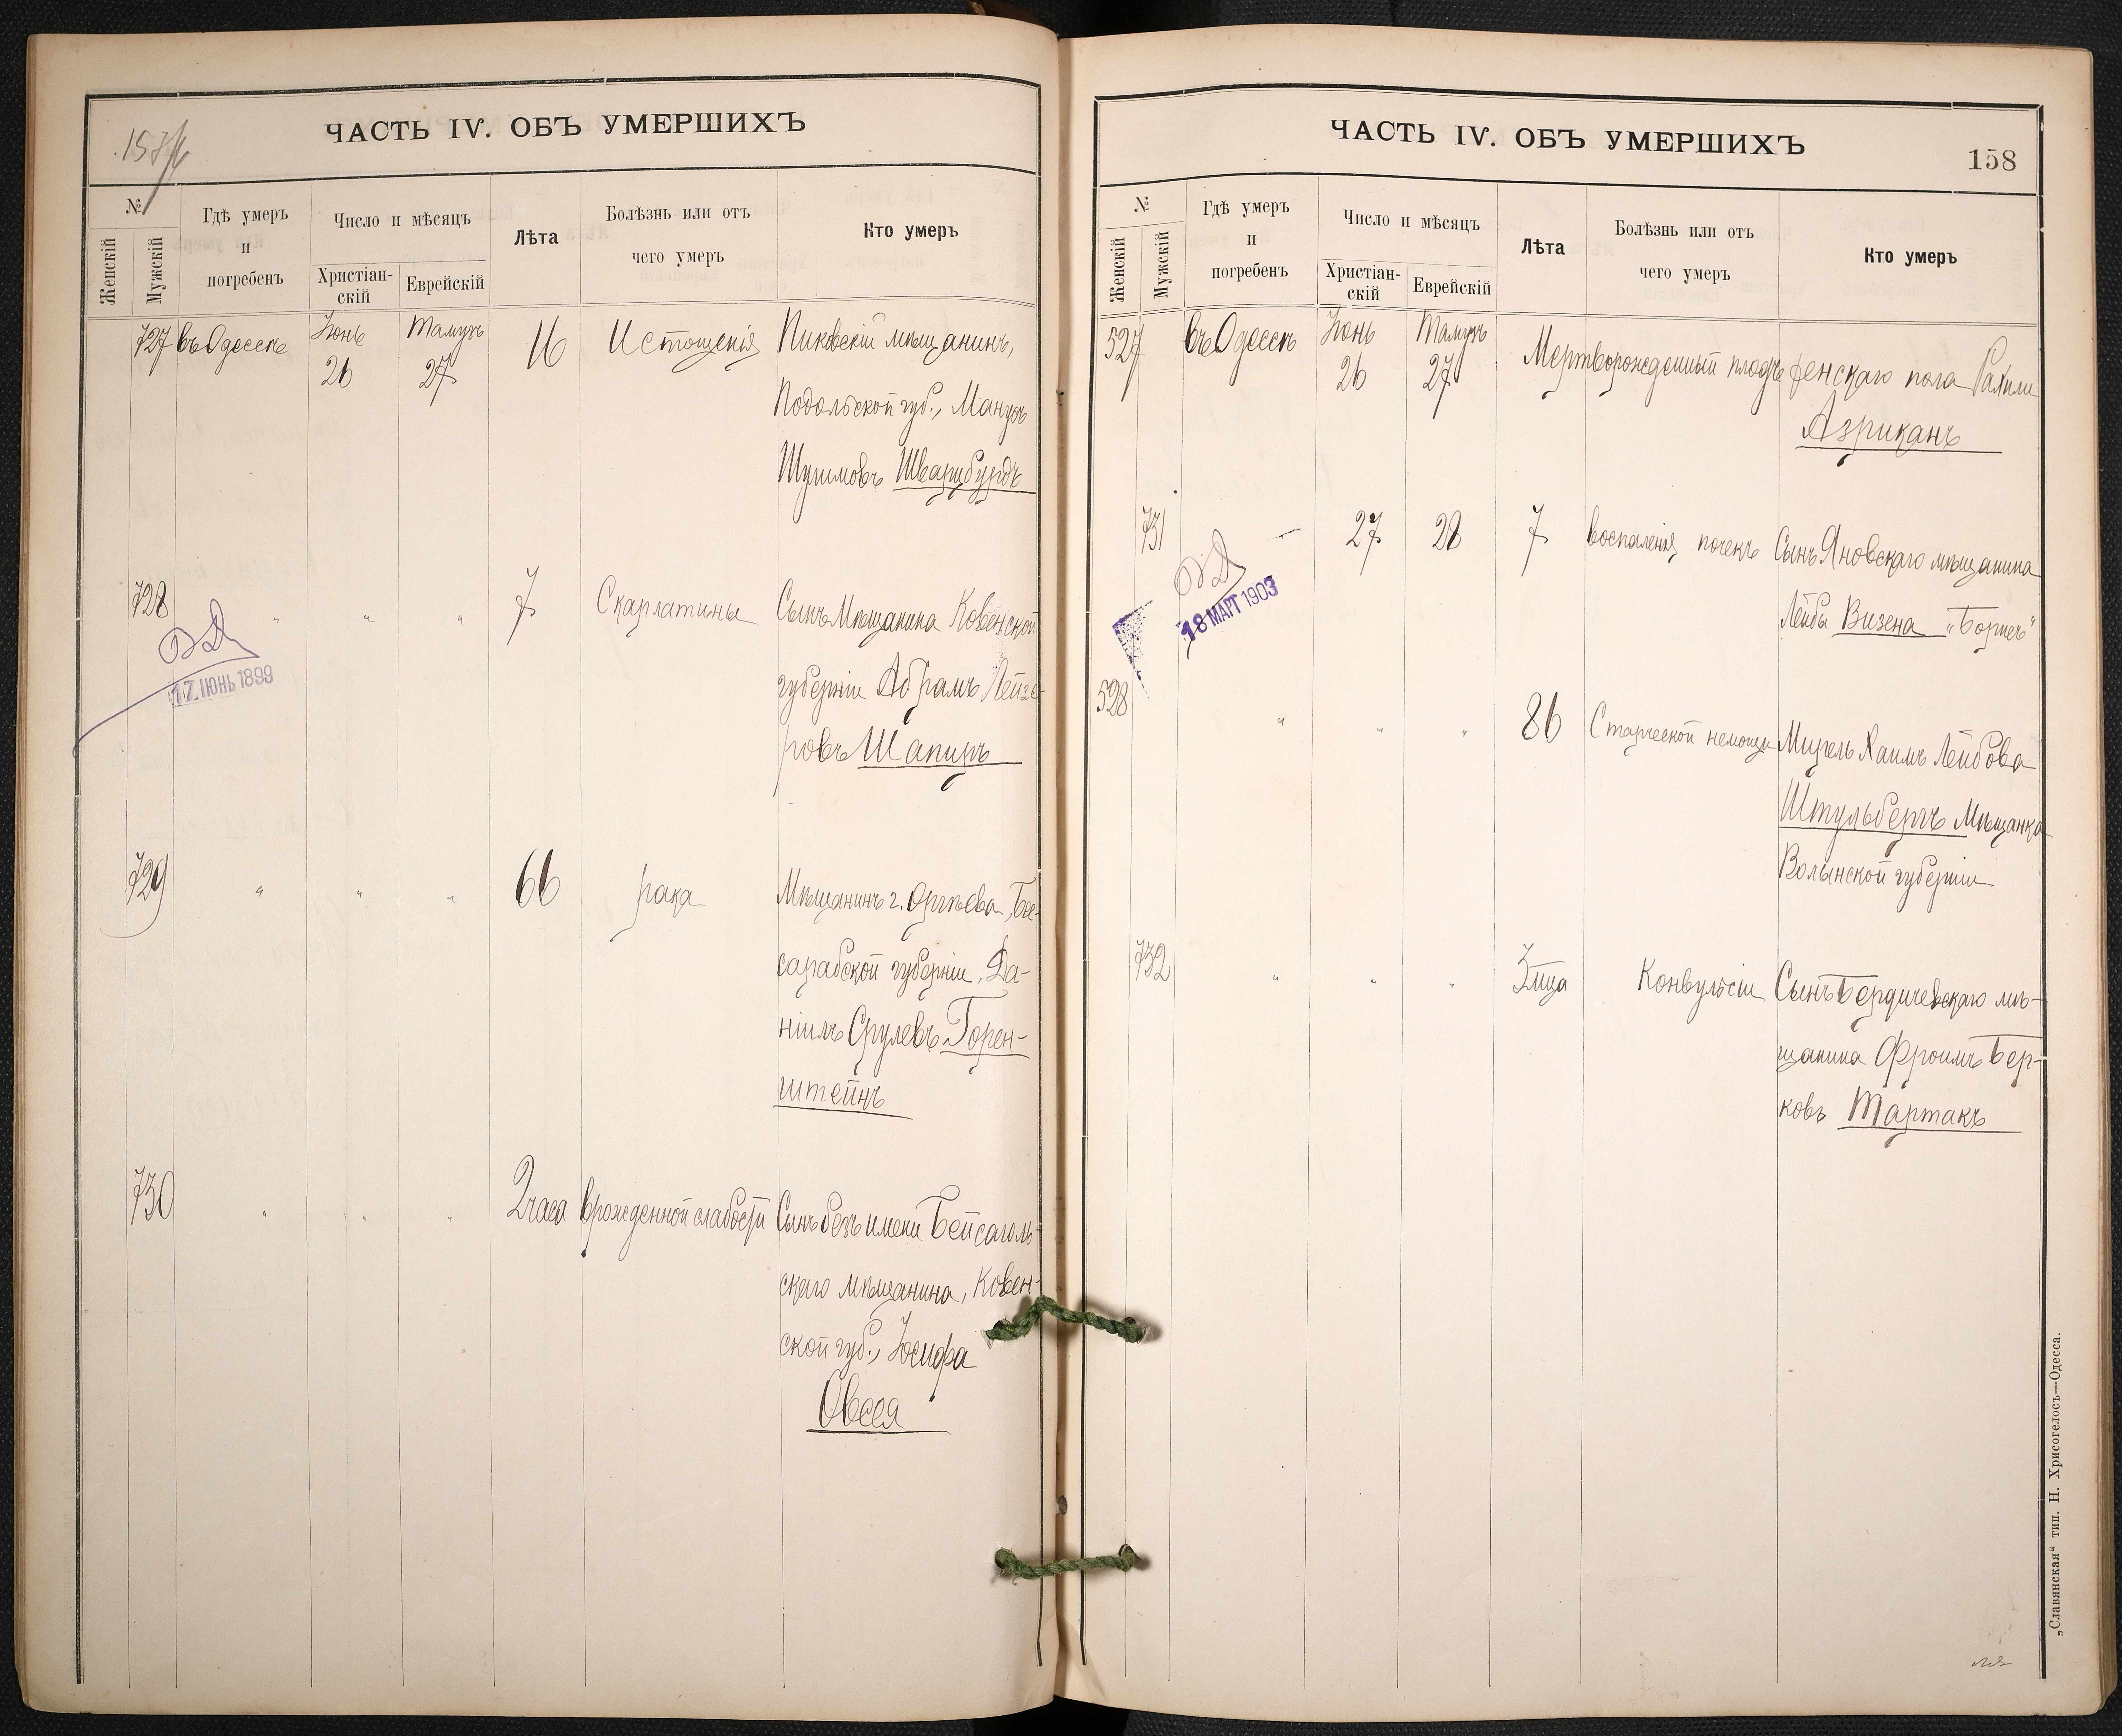 157/б
ЧАСТЬ IV. ОБЪ УМЕРШИХЪ
№
Женскій
Мужскій
Гдѣ умеръ
и
погребенъ
Число и мѣсяцъ
Христіан-
скій
Еврейскій
Лѣта
Болѣзнь или отъ
чего умеръ
Кто умеръ
727 въ Одессѣ Іюнь Тамузъ 16 Истощенія Пиковскій мѣщанинъ,
26 27
Подольской губ.,
Шварцбурдъ
728 " " " 7 Скарлатины Сынъ Мѣщанина Ковенской
губерніи Абрамъ Лейзе-
ровъ Шапиръ
17 ІЮНЬ 1899
729 " " " 66 рака Мѣщанинъ г. Оргѣева, Бес-
сарабской губерніи, Да-
ніилъ Срулевъ Горен-
штейнъ
730 " " " 2 часа врожденной слабости Сынъ безъ имени Бейсаголь-
скаго мѣщанина, Ковен-
ской губ., Іосифа
Овсея
ЧАСТЬ IV. ОБЪ УМЕРШИХЪ
158
№
Женскій
Мужскій
Гдѣ умеръ
и
погребенъ
Число и мѣсяцъ
Христіан-
скій
Еврейскій
Лѣта
Болѣзнь или отъ
чего умеръ
Кто умеръ
527 въ Одессѣ Іюнь Тамузъ Мертворожденный плодъ женскаго пола Рахили
26 27
Азриканъ
731 27 28 7 воспаленія почекъ Сынъ Яновскаго мѣщанина
Лейбы Визена "Борпеъ"
18 МАРТ 1903
528 " " " 86 Старческой немощи Мирель Хаимъ Лейбова
Штульбергъ Мѣщанка
Волынской губерніи
732 " " " 3 мца Конвульсіи Сынъ Бердичевскаго мѣ-
щанина Фроимъ Бер-
ковъ Тартакъ
„Славянская“ тип. Н. Хрисогелосъ—Одесса.